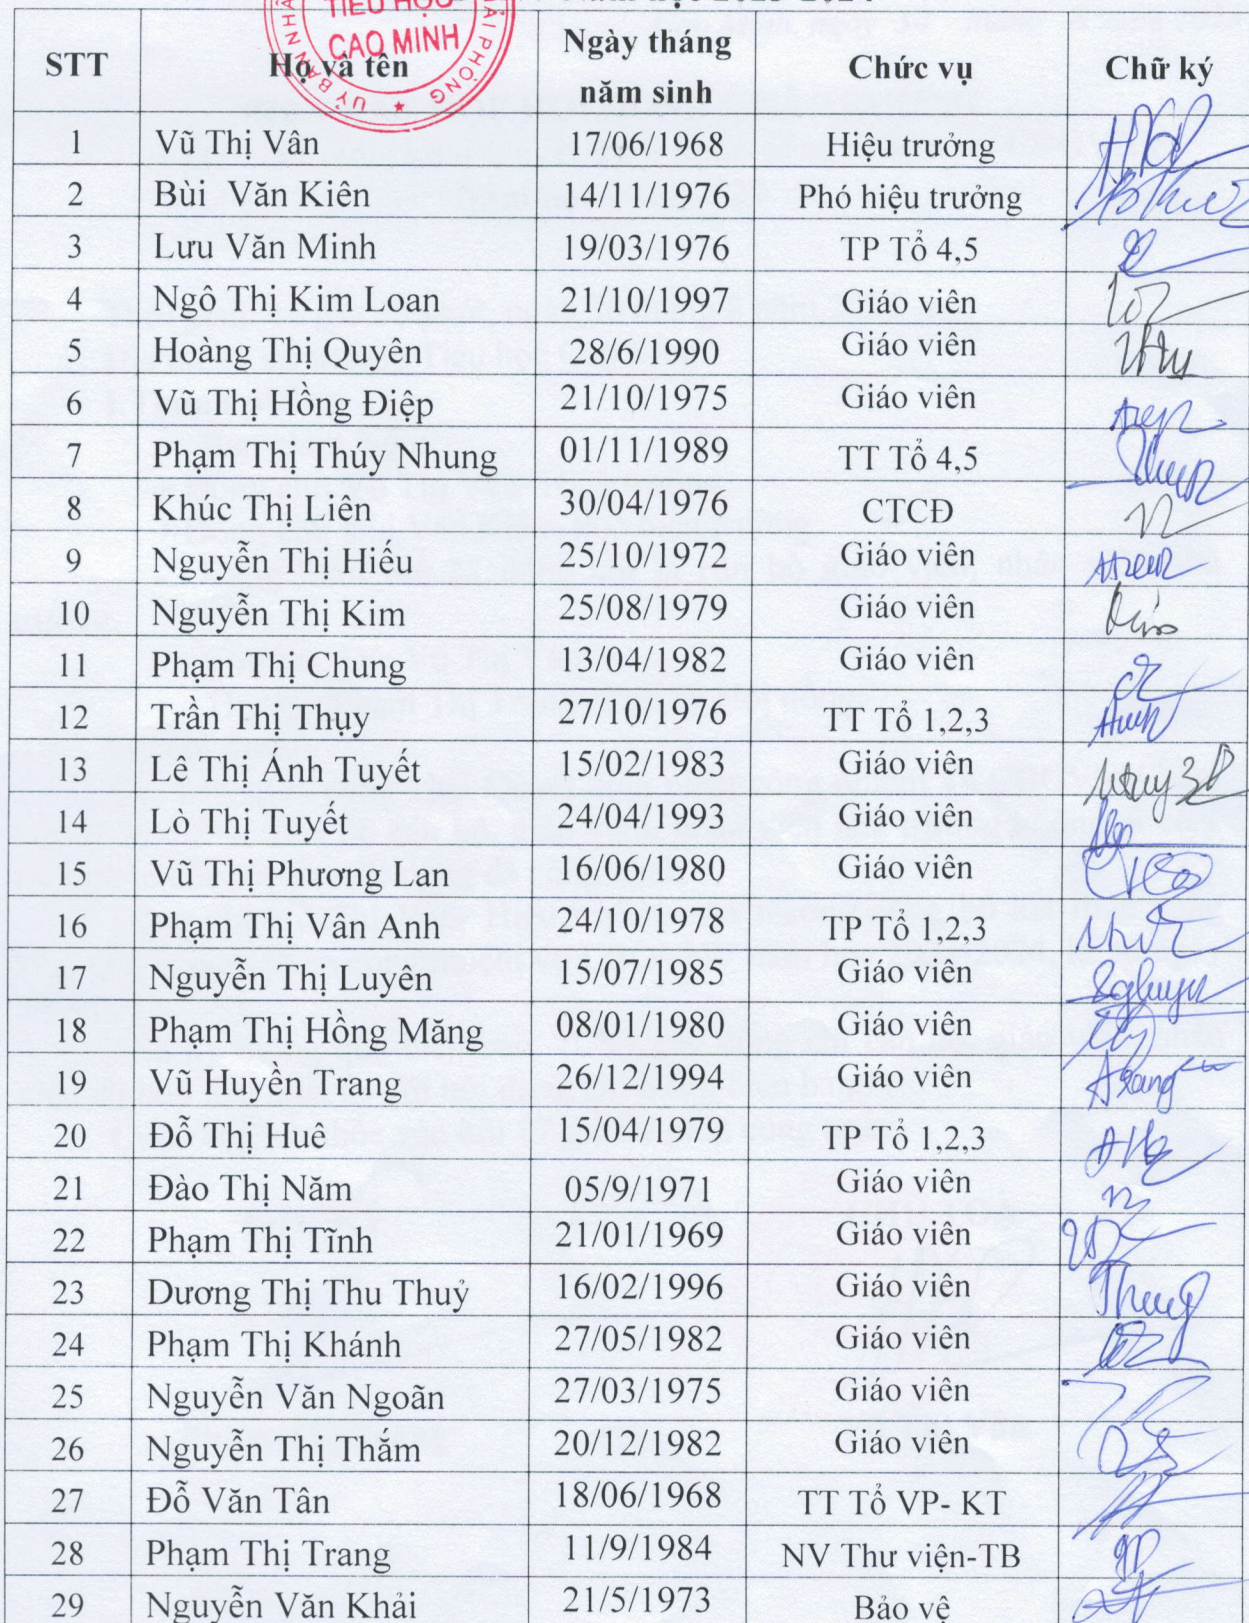 TIỂU HỌC
CAO MINH
STT Họ và tên Ngày tháng năm sinh Chức vụ Chữ ký
1 Vũ Thị Vân 17/06/1968 Hiệu trưởng
2 Bùi Văn Kiên 14/11/1976 Phó hiệu trưởng
3 Lưu Văn Minh 19/03/1976 TP Tổ 4,5
4 Ngô Thị Kim Loan 21/10/1997 Giáo viên
5 Hoàng Thị Quyên 28/6/1990 Giáo viên
6 Vũ Thị Hồng Điệp 21/10/1975 Giáo viên
7 Phạm Thị Thúy Nhung 01/11/1989 TT Tổ 4,5
8 Khúc Thị Liên 30/04/1976 CTCĐ
9 Nguyễn Thị Hiếu 25/10/1972 Giáo viên
10 Nguyễn Thị Kim 25/08/1979 Giáo viên
11 Phạm Thị Chung 13/04/1982 Giáo viên
12 Trần Thị Thụy 27/10/1976 TT Tổ 1,2,3
13 Lê Thị Ánh Tuyết 15/02/1983 Giáo viên
14 Lò Thị Tuyết 24/04/1993 Giáo viên
15 Vũ Thị Phương Lan 16/06/1980 Giáo viên
16 Phạm Thị Vân Anh 24/10/1978 TP Tổ 1,2,3
17 Nguyễn Thị Luyên 15/07/1985 Giáo viên
18 Phạm Thị Hồng Măng 08/01/1980 Giáo viên
19 Vũ Huyền Trang 26/12/1994 Giáo viên
20 Đỗ Thị Huê 15/04/1979 TP Tổ 1,2,3
21 Đào Thị Năm 05/9/1971 Giáo viên
22 Phạm Thị Tĩnh 21/01/1969 Giáo viên
23 Dương Thị Thu Thuỷ 16/02/1996 Giáo viên
24 Phạm Thị Khánh 27/05/1982 Giáo viên
25 Nguyễn Văn Ngoãn 27/03/1975 Giáo viên
26 Nguyễn Thị Thắm 20/12/1982 Giáo viên
27 Đỗ Văn Tân 18/06/1968 TT Tổ VP- KT
28 Phạm Thị Trang 11/9/1984 NV Thư viện-TB
29 Nguyễn Văn Khải 21/5/1973 Bảo vệ